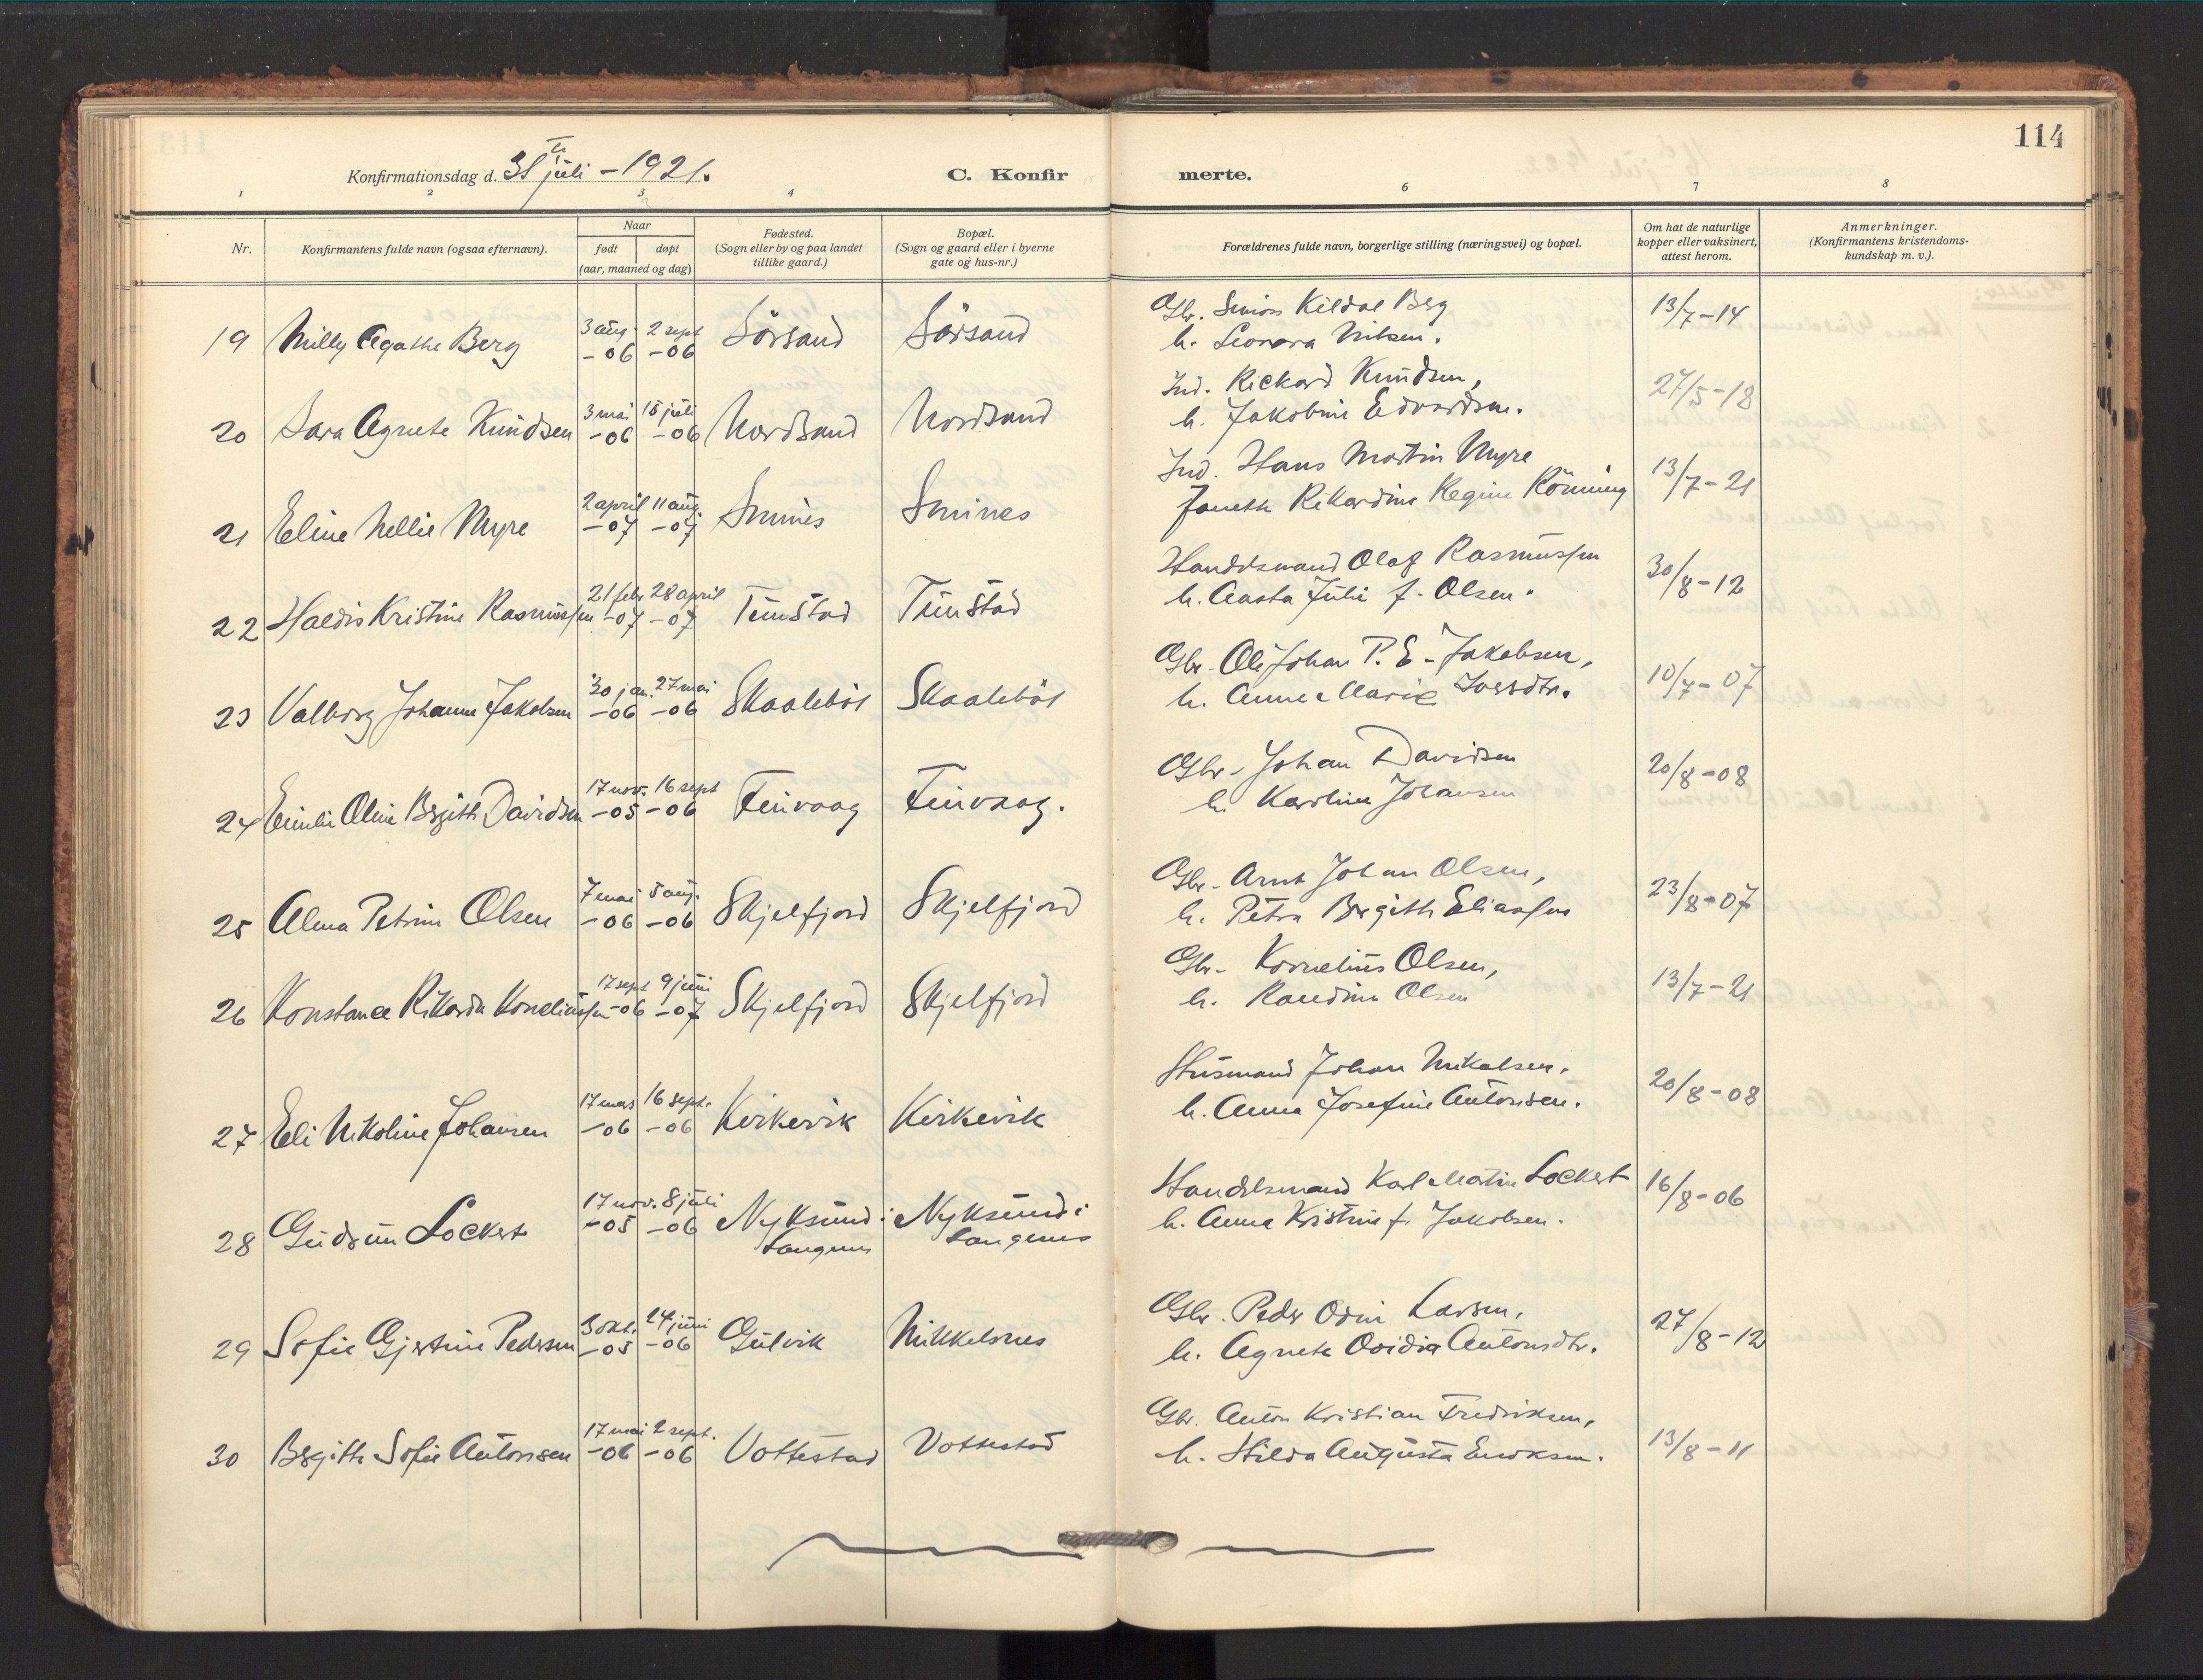 114
Konfirmationsdag d. 31te juli - 1921.
C. Konfirmerte.
1 2 3 4 6 7 8
Nr.
Konfirmantens fulde navn (ogsaa efternavn).
Naar
født døpt
(aar, maaned og dag)
Fødested.
(Sogn eller by og paa landet
tillike gaard.)
Bopæl.
(Sogn og gaard eller i byerne
gate og hus-nr.)
Forældrenes fulde navn, borgerlige stilling (næringsvei) og bopæl.
Om hat de naturlige
kopper eller vaksinert,
attest herom.
Anmerkninger.
(Konfirmantens kristendoms-
kundskap m. v.).
19 Milly Agathe Berg 3 aug. -06 2 sept -06 Sörsand Sörsand
Gbr. Simon Kildal Berg
h. Leonora Nilsen.
13/7-14
20 Sara Agnete Knudsen 3 mai -06 15 juli -06 Nordsand Nordsand
Ind. Rickard Knudsen,
h. Jakobine Edvardsen.
27/5-18
21 Eline Nellie Myre 2 april -07 11 aug. -07 Smines Smines
Ind. Hans Martin Myre
Janette Rikardine Regine Rönning
13/7-21
22 Haldis Kristine Rasmussen 21 febr -07 28 april -07 Tunstad Tunstad
Handelsmand Olaf Rasmussen
h. Aasta Julie f. Olsen.
30/8-12
23 Valborg Johanne Jakobsen 30 jan. -06 27 mai -06 Skaalebös Skaalebös
Gbr. Ole Johan P. E. Jakobsen,
h. Anne Marie
10/7-07
24 Emilie Oline Bergitte Davidsen 17 nov. -05 16 sept -06 Finvaag Finvaag.
Gbr. Johan Davidsen
h. Karoline Johansen
20/8-08
25 Alma Petrine Olsen 7 mai -06 5 aug. -06 Skjelfjord Skjelfjord
Gbr. Arnt Johan Olsen,
h. Petra Bergitte Eliassen
23/8-07
26 Konstance Rikarda Korneliussen 17 sept -06 9 juni -07 Skjelfjord Skjelfjord
Gbr. Kornelius Olsen,
h. Randine Olsen
13/7-21
27 Eli Nikoline Johansen 17 mars -06 16 sept. -06 Kirkevik Kirkevik
Husmand Johan Nikolsen.
h. Anna Josefine Antonsen.
20/8-08
28 Gudrun Lockert 17 nov. -05 8 juli -06 Nyksund i Langenes Nyksund i Langenes
Handelsmand Karl Martin Lockert
h. Anna Kristine f. Jakobsen.
16/8-06
29 Sofie Gjertine Pedersen 3 okt. -05 24 juni -06 Gulvik Mikkelsnes
Gbr. Peder Odin Larsen,
h. Agnete Ovidia Antonsdtr.
27/8-12
30 Bergitte Sofie Antonsen 17 mai -06 2 sept. -06 Vottestad Vottestad
Gbr. Anton Kristian Fredriksen,
h. Hilda Augusta Eriksen.
13/8-11